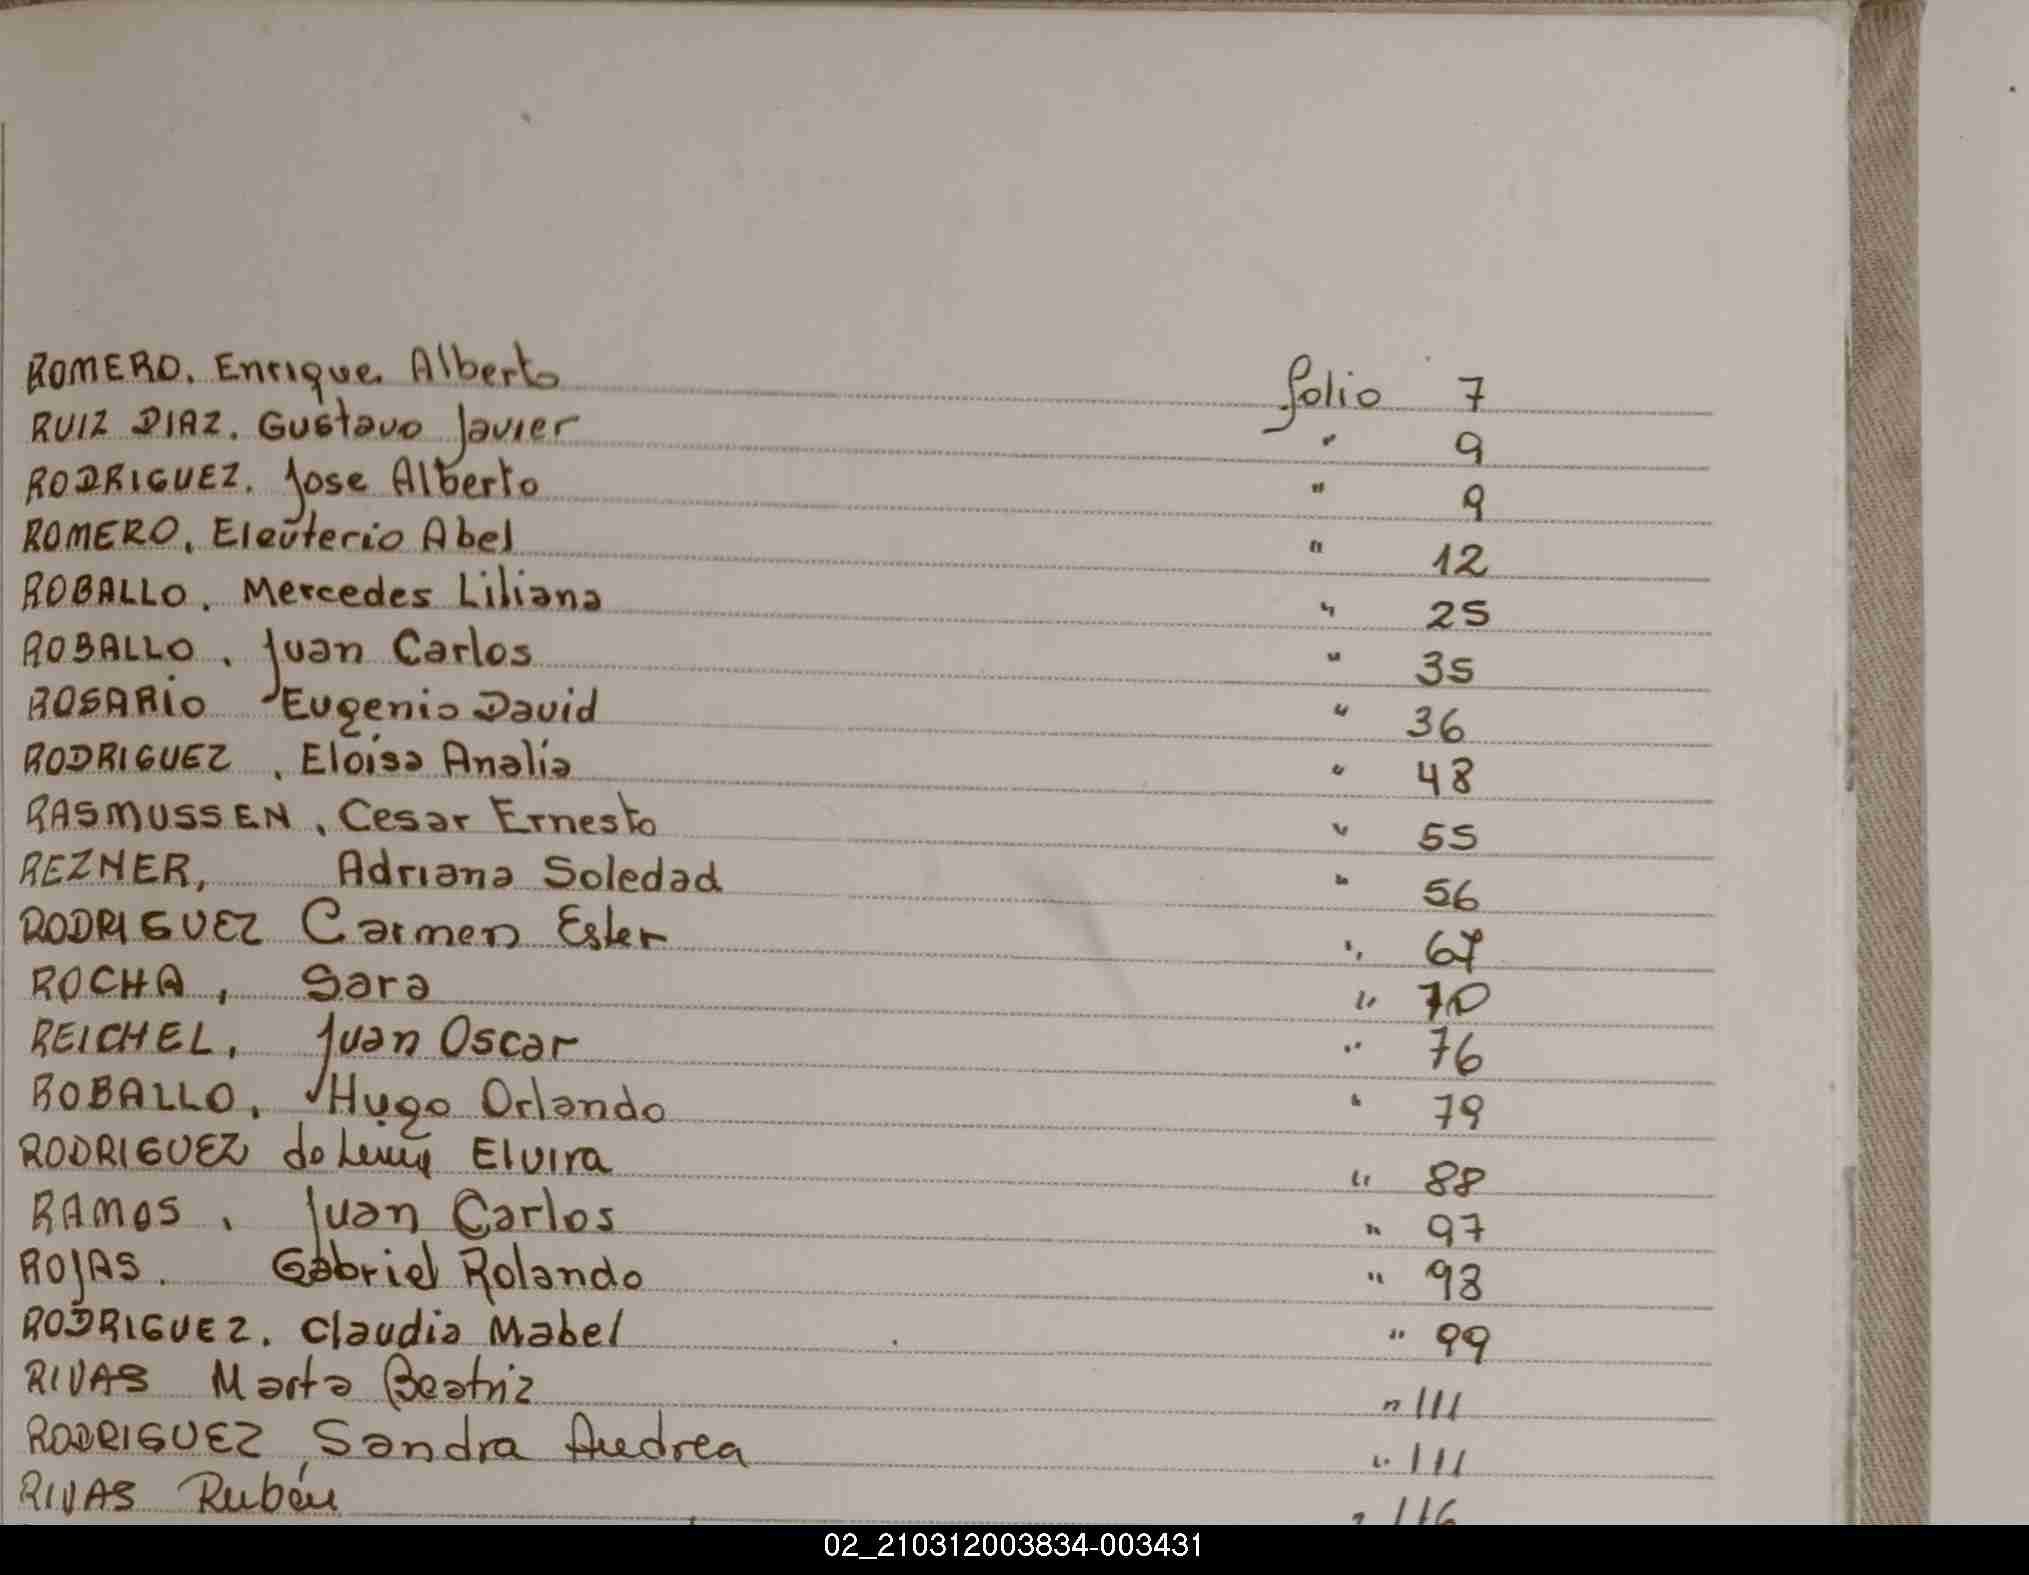 ROMERO. Enrique Alberto folio 7
RUIZ DIAZ. Gustavo Javier " 9
RODRIGUEZ. Jose Alberto " 9
ROMERO, Eleuterio Abel " 12
ROBALLO, Mercedes Liliana " 25
ROBALLO, Juan Carlos " 35
ROSARIO Eugenio David " 36
RODRIGUEZ, Eloisa Analia " 48
RASMUSSEN, Cesar Ernesto " 55
REZNER, Adriana Soledad " 56
RODRIGUEZ Carmen Ester " 67
ROCHA, Sara " 70
REICHEL, Juan Oscar " 76
ROBALLO, Hugo Orlando " 79
RODRIGUEZ Elvira " 88
RAMOS, Juan Carlos " 97
ROJAS. Gabriel Rolando " 98
RODRIGUEZ. Claudia Mabel " 99
RIVAS Marta Beatriz " 111
RODRIGUEZ, Sandra Andrea " 111
RIVAS Rubén " 116
02_210312003834-003431